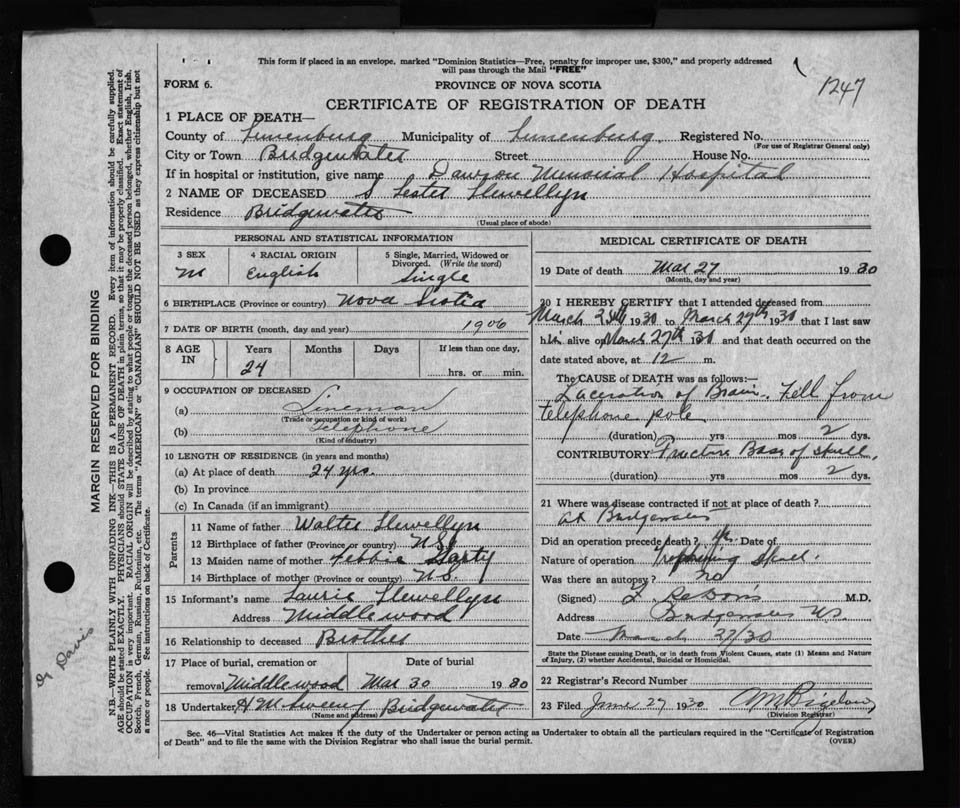 This form if placed in an envelope, marked "Dominion Statistics—Free, penalty for improper use, $300," and properly addressed
will pass through the Mail "FREE"
FORM 6.
PROVINCE OF NOVA SCOTIA
1247
CERTIFICATE OF REGISTRATION OF DEATH
1 PLACE OF DEATH—
County of Lunenburg Municipality of Lunenburg Registered No.
(For use of Registrar General only)
City or Town Bridgewater Street House No.
If in hospital or institution, give name Dawson Memorial Hospital
2 NAME OF DECEASED S Lester Llewellyn
Residence Bridgewater
(Usual place of abode)
PERSONAL AND STATISTICAL INFORMATION
3 SEX 4 RACIAL ORIGIN 5 Single, Married, Widowed or
Divorced. (Write the word)
M English Single
6 BIRTHPLACE (Province or country) Nova Scotia
7 DATE OF BIRTH (month, day and year) 1906
8 AGE IN Years Months Days If less than one day,
24 hrs. or min.
9 OCCUPATION OF DECEASED
(a) Lineman
(Trade or occupation or kind of work)
(b) Telephone
(Kind of industry)
10 LENGTH OF RESIDENCE (in years and months)
(a) At place of death 24 yrs.
(b) In province
(c) In Canada (if an immigrant)
Parents
11 Name of father Walter Llewellyn
12 Birthplace of father (Province or country) N.S.
13 Maiden name of mother
14 Birthplace of mother (Province or country) N.S.
15 Informant's name Laurie Llewellyn
Address Middlewood
16 Relationship to deceased Brother
17 Place of burial, cremation or Date of burial
removal Middlewood Mar 30 1930
18 Undertaker Bridgewater
(Name and address)
MEDICAL CERTIFICATE OF DEATH
19 Date of death Mar 27 1930
(Month, day and year)
20 I HEREBY CERTIFY that I attended deceased from
March 25th 1930 to March 27th 1930 that I last saw
him alive on March 27th 1930 and that death occurred on the
date stated above, at 12 m.
The CAUSE OF DEATH was as follows:—
Laceration of Brain. Fell from
telephone pole
(duration) yrs mos 2 dys.
CONTRIBUTORY Fracture Base of skull.
(duration) yrs mos 2 dys.
21 Where was disease contracted if not at place of death?
At Bridgewater
Did an operation precede death? Date of
Nature of operation Trephining Skull.
Was there an autopsy? no
(Signed) M.D.
Address Bridgewater NS
Date March 27/30
State the Disease causing Death, or in death from Violent Causes, state (1) Means and
Nature of Injury, (2) whether Accidental, Suicidal or Homicidal.
22 Registrar's Record Number
23 Filed June 27 1930
(Division Registrar)
Sec. 46—Vital Statistics Act makes it the duty of the Undertaker or person acting as Undertaker to obtain all the particulars required in the "Certificate of Registration
of Death" and to file the same with the Division Registrar who shall issue the burial permit. (OVER)
MARGIN RESERVED FOR BINDING
N.B.—WRITE PLAINLY WITH UNFADING INK—THIS IS A PERMANENT RECORD. Every item of information should be carefully supplied.
AGE should be stated EXACTLY. PHYSICIANS should STATE CAUSE OF DEATH in plain terms, so that it may be properly classified. Exact statement of
OCCUPATION is very important. RACIAL ORIGIN will be described by stating to what people or tongue the deceased person belonged, whether English, Irish,
Scotch, French, German, Russian, Ruthenian, etc. The terms "AMERICAN" or "CANADIAN" SHOULD NOT BE USED as they express citizenship but not
a race or people. See instructions on back of Certificate.
Davis